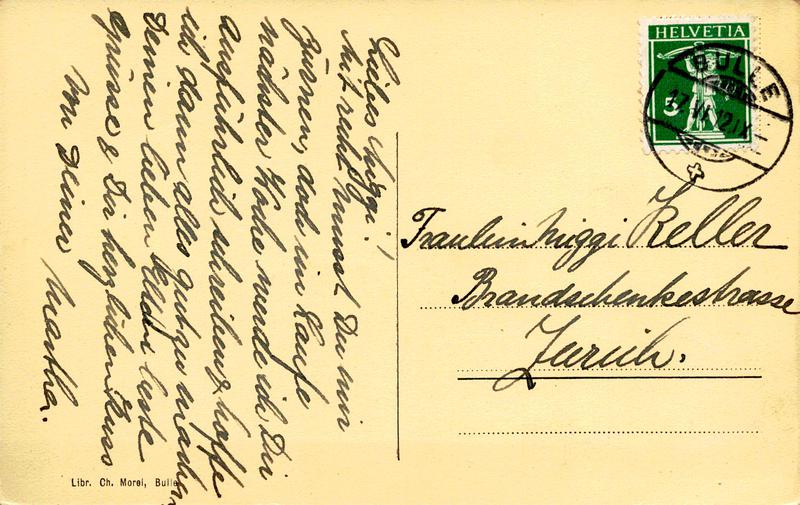 Liebes Miggi!
Mit recht musst Du mir
zürnen, doch im Laufe
nächster Woche werde ich Dir
ausführlich schreiben & hoffe
ich dann alles gutzumachen
Deinen lieben Eltern beste
Grüsse & Dir herzlichen Kuss
von Deiner Martha.
HELVETIA
5
BULLE
17.VI.12.IX
Fräulein Miggi Keller
Brandschenkestrasse
Zürich.
Libr. Ch. Morel, Bulle